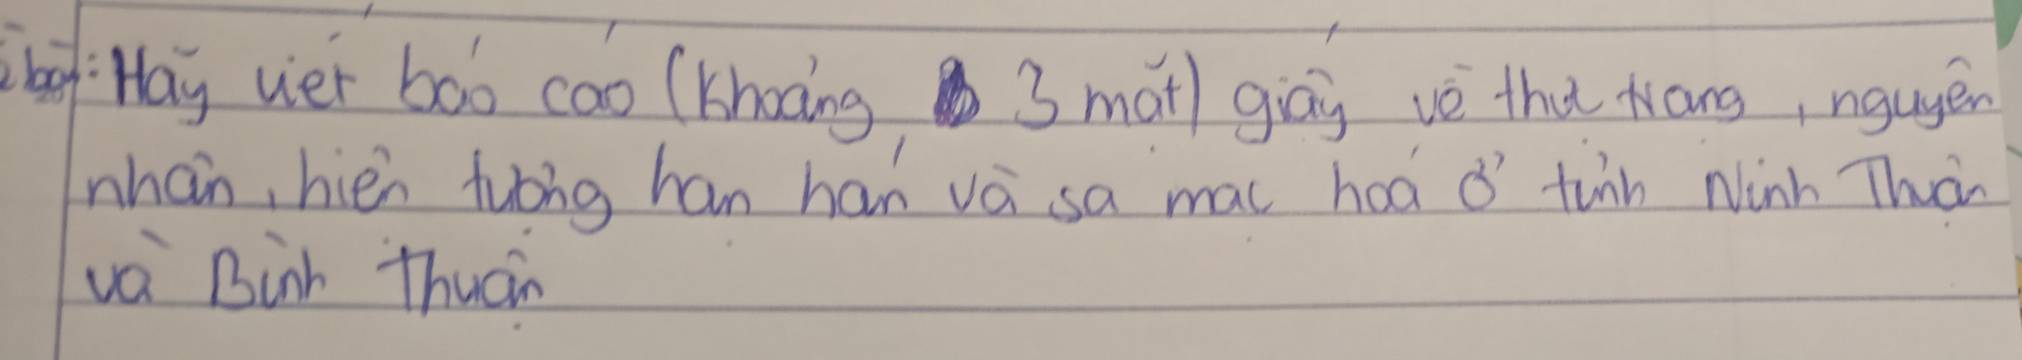 Hãy viết báo cáo (Khoảng 3 mặt) giấy về thực trạng, nguyên
nhân, hiện tượng hạn hán và sa mạc hoá ở tỉnh Ninh Thuận
và Bình Thuận